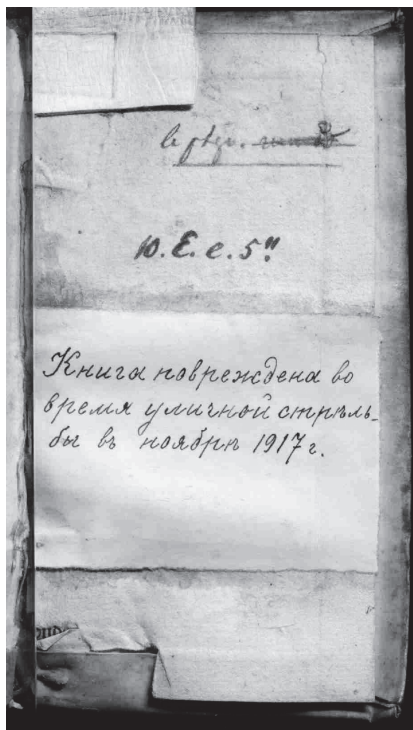 10. E. e. 5"
Книга повреждена во
время уличной стрѣль-
бы въ ноябрѣ 1917 г.